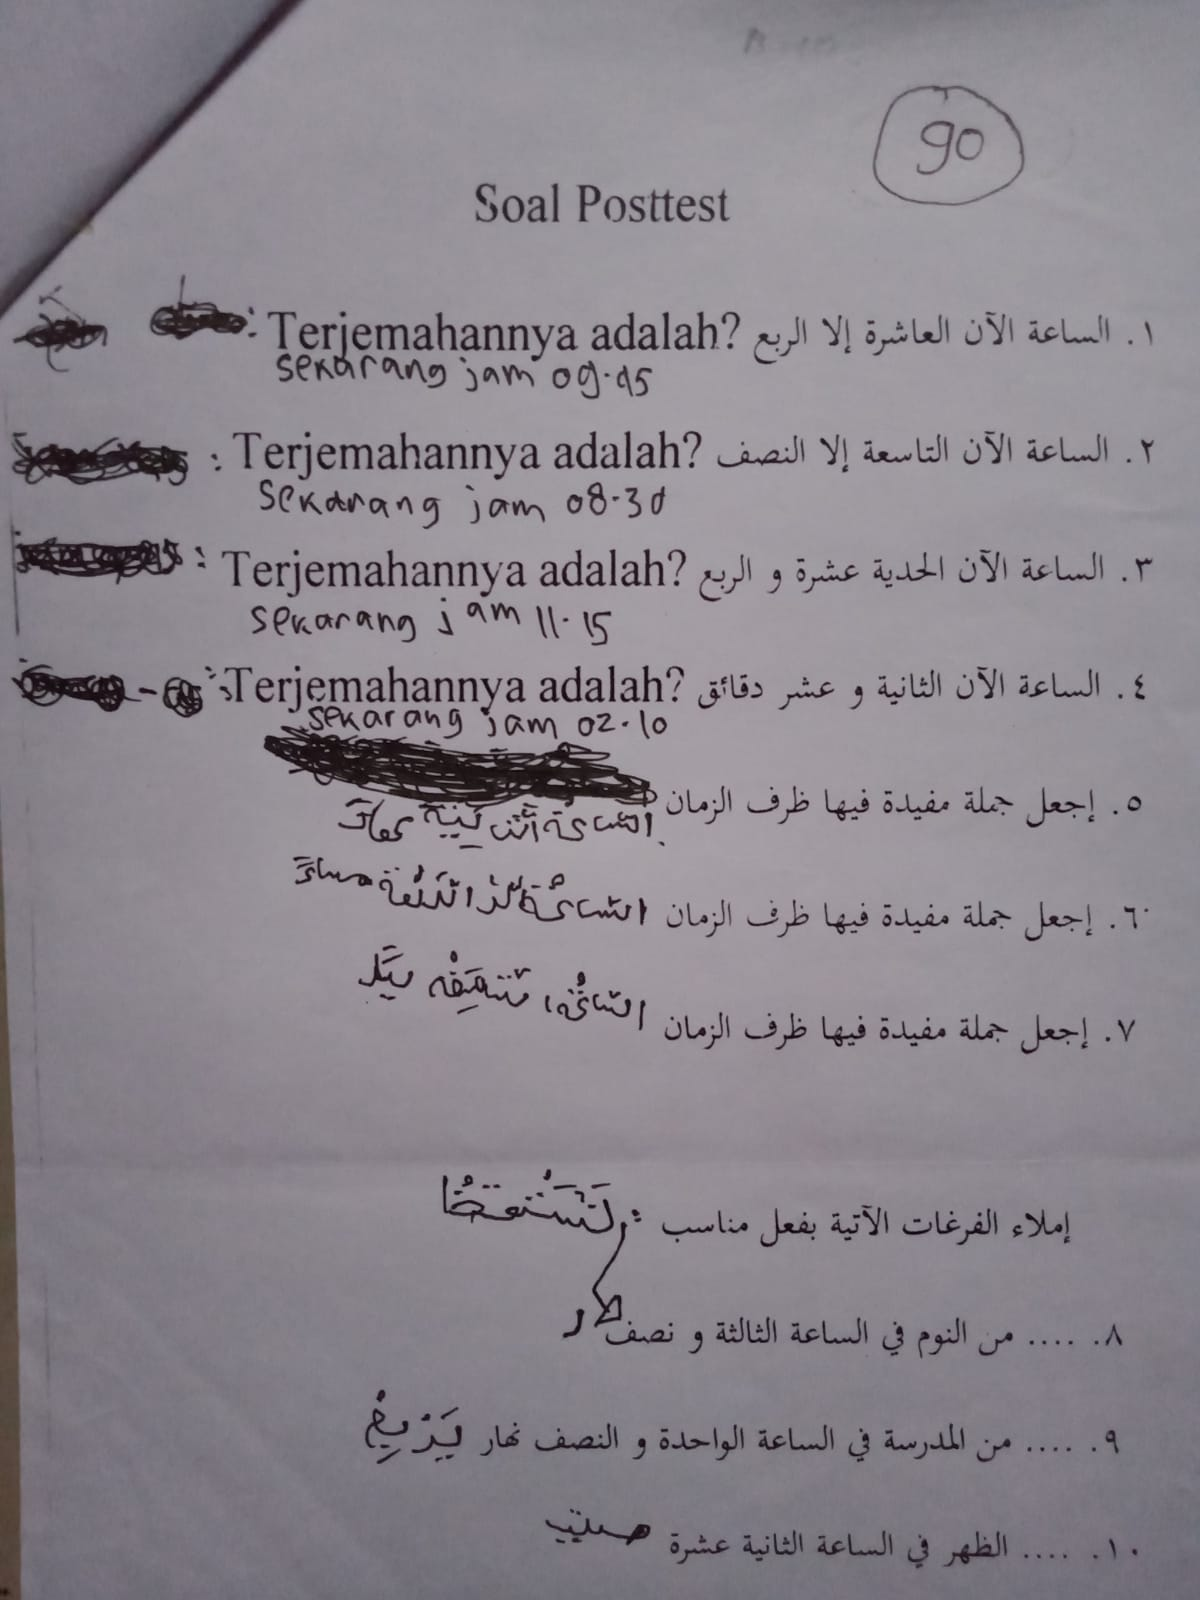 90
Soal Posttest
١. الساعة الآن العاشرة إلا الربع Terjemahannya adalah? :
sekarang jam 09.45
٢. الساعة الآن التاسعة إلا النصف Terjemahannya adalah? :
sekarang jam 08.30
٣. الساعة الآن الحدية عشرة و الربع Terjemahannya adalah? :
sekarang jam 11.15
٤. الساعة الآن الثانية و عشر دقائق Terjemahannya adalah? :
sekarang jam 02.10
٥. إجعل جملة مفيدة فيها ظرف الزمان
٦. إجعل جملة مفيدة فيها ظرف الزمان مساءً
٧. إجعل جملة مفيدة فيها ظرف الزمان
إملاء الفرغات الآتية بفعل مناسب :
٨. .... من النوم في الساعة الثالثة و نصف
٩. .... من المدرسة في الساعة الواحدة و النصف نهار
١٠. .... الظهر في الساعة الثانية عشرة